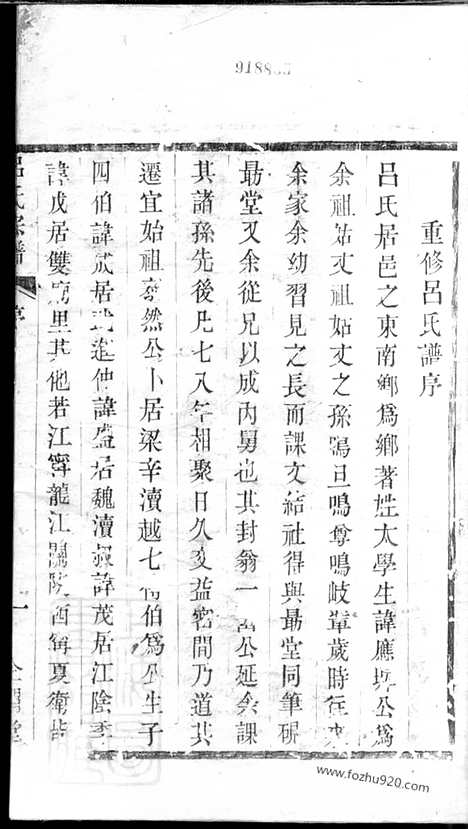 918865
重修呂氏譜序
呂氏居邑之東南鄉為鄉著姓太學生諱應兵公為
余祖姑丈祖姑丈之孫鳴旦鳴尊鳴岐輩歲時往來
余家余幼習見之長而課文結社得與最堂同筆硯
最堂又余從兄以成內舅也其封翁一 公延余課
其諸孫先後凡七八年相聚日久交益密間乃道其
遷宜始祖 然公卜居梁辛瀆越七 伯為公生子
四伯諱成居 遷仲諱盛居魏瀆 諱茂居江陰季
諱戊居雙廟里其他若江寧龍江關陝西甯夏衛
呂氏宗譜
序
一
www.fozhu920.com